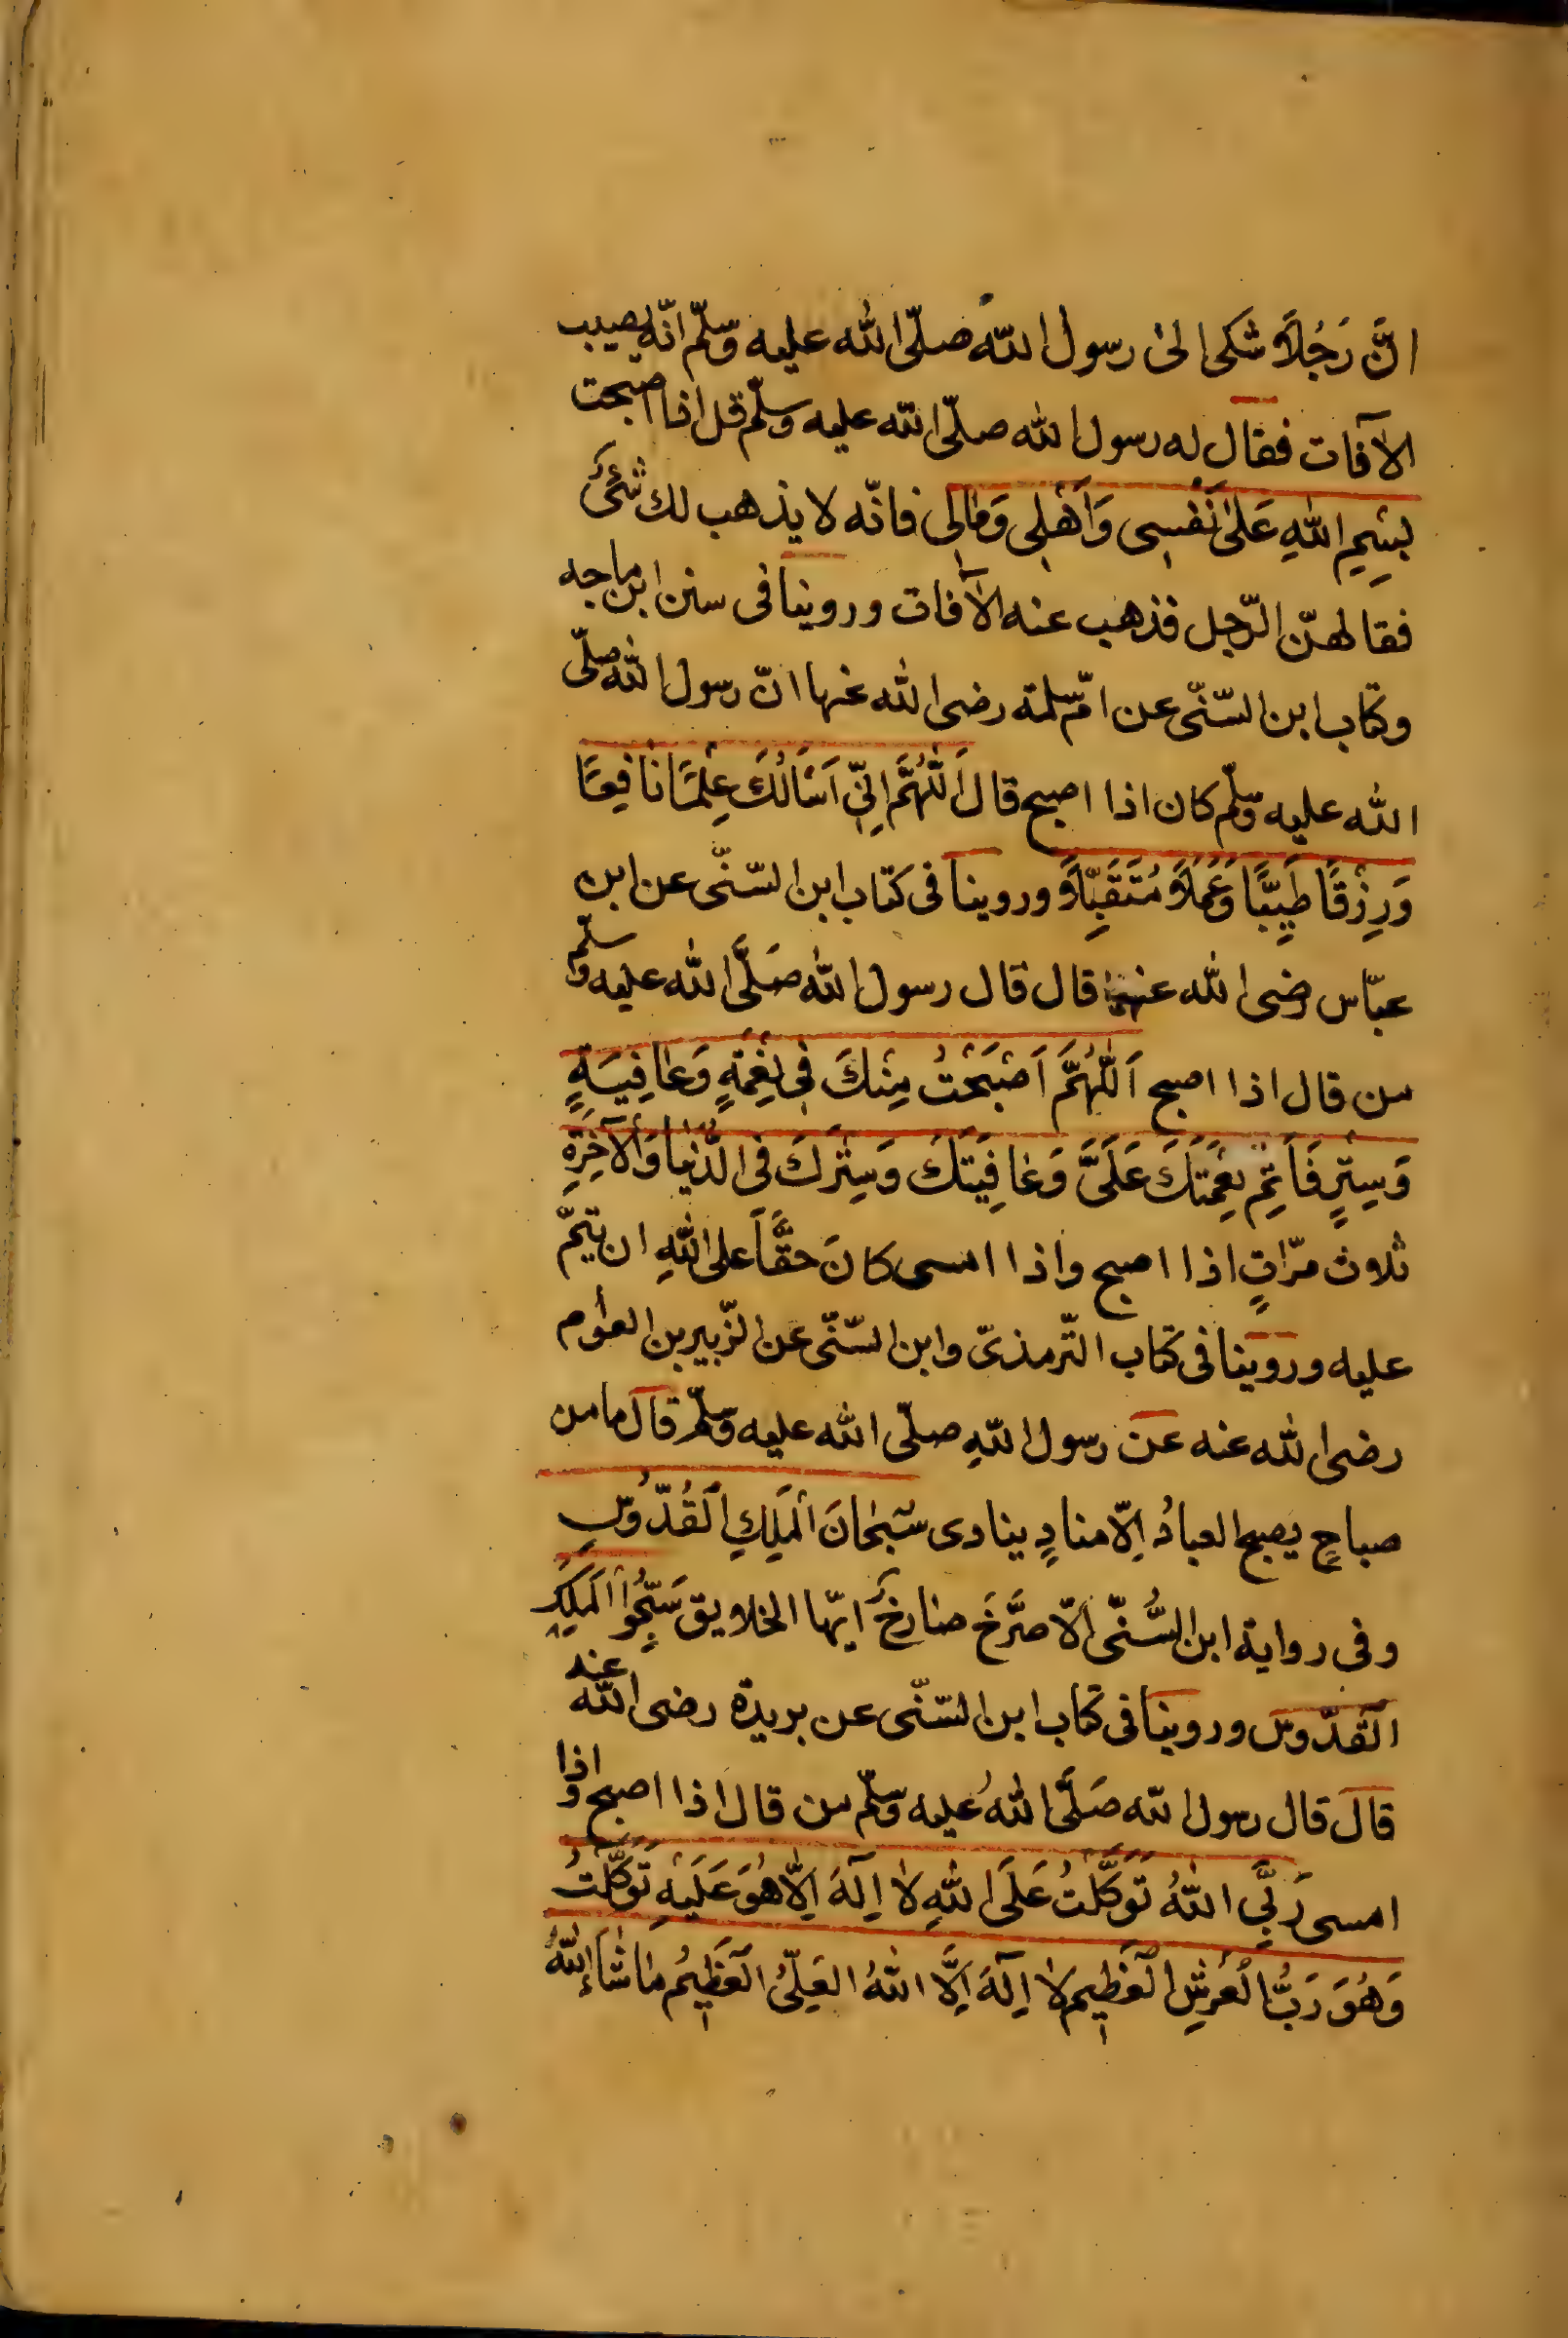 انَّ رَجُلاً شكى الىٰ رسول اللّه صلّى اللّه عليه وسلّم انّه يصيب
الآفات فقال له رسول اللّه صلّى اللّه عليه وسلّم قل اذا اصبحت
بِسْمِ اللّٰهِ عَلىٰ نَفْسِى وَاَهْلِى وَمٰالِى فانّه لا يذهب لك شَىْءٌ
فقالهنّ الرّجل فذهب عنه الآفات وروينا فى سنن ابن ماجه
وكتاب ابن السّنّى عن امّ سلمة رضى اللّه عنها انّ رسول اللّه صلّى
اللّه عليه وسلّم كان اذا اصبح قال اَللّٰهُمَّ اِنِّى اَسْاَلُكَ عِلْمًا نٰافِعًا
وَرِزْقًا طَيِّبًا وَعَمَلاً مُتَقَبَّلاً وروينا فى كتاب ابن السّنّى عن ابن
عبّاس رضى اللّه عنهما قال قال رسول اللّه صَلَّى اللّه عليه وسلّم
من قال اذا اصبح اَللّٰهُمَّ اَصْبَحْتُ مِنْكَ فِى نِعْمَةٍ وَعٰافِيَةٍ
وَسِتْرٍ فَاَتِمْ نِعْمَتَكَ عَلَىَّ وَعٰافِيَتَكَ وَسِتْرَكَ فى الدُّنْيٰا وَالْآخِرَةِ
ثلاث مرّاتٍ اذا اصبح واذا امسى كانَ حقًّا على اللّٰهِ ان يتمّ
عليه وروينا فى كتاب التّرمذىّ وابن السّنّى عن الزّبير بن العوٰام
رضى اللّه عنه عن رسول اللّهِ صلّى اللّه عليه وسلّم قال ما من
صباحٍ يصبح العبادُ اِلاّ منادٍ ينادى سُبْحٰانَ الْمَلِكِ الْقُدُّوسِ
وفى رواية ابن السُّنّى اِلاّ صَرَّخَ صٰارِخٌ ايّها الخلايق سَبِّحُوا الْمَلِكَ
الْقدّوس وروينا فى كتاب ابن السّنّى عن بريدة رضى اللّه عنه
قال قال رسول اللّه صَلَّى اللّٰهُ عليه وسلّم من قال اذا اصبح واذا
امسى رَبِّىَ اللّٰهُ تَوَكَّلْتُ عَلَى اللّٰهِ لاٰ اِلٰهَ اِلاّٰ هُوَ عَلَيْهِ تَوَكَّلْتُ
وَهُوَ رَبُّ الْعَرْشِ الْعَظِيمِ لاٰ اِلٰهَ اِلَّا اللّٰهُ العَلِىُّ الْعَظِيمُ مٰا شٰاءَ اللّٰهُ